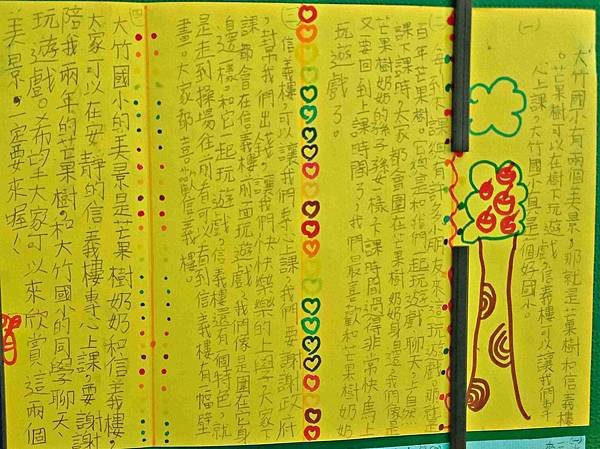 (一)
大竹國小有兩個美景，那就是芒果樹和信義樓
。芒果樹可以在樹下玩遊戲，信義樓可以讓我們專
心上課，大竹國小真是一個好國小。
(二)每到下課
百年芒果樹。
課下課時，大家都會圍在芒果樹奶奶身邊，我們像是
芒果樹奶奶的孫子孫女一樣，下課時間過得非常快，馬上
又要回到上課時間了，我們最喜歡和芒果樹奶奶
玩遊戲了。
(三)信義樓可以讓我們專心上課，我們要謝謝政府
，幫我們出錢，讓我們快快樂樂的上學，大家下
課都會在信義樓前面玩遊戲，我們像是圍在它身
邊一樣，和它一起玩遊戲，信義樓還有個特色，就
是走到操場往前看可以看到信義樓有一幅壁
畫。大家都喜歡信義樓。
(四)
大竹國小的美景是芒果樹奶奶和信義樓，
大家可以在安靜的信義樓專心上課，要謝謝
陪我兩年的芒果樹，和大竹國小的同學聊天、
玩遊戲。希望大家可以來欣賞這兩個
美景，一定要來喔！